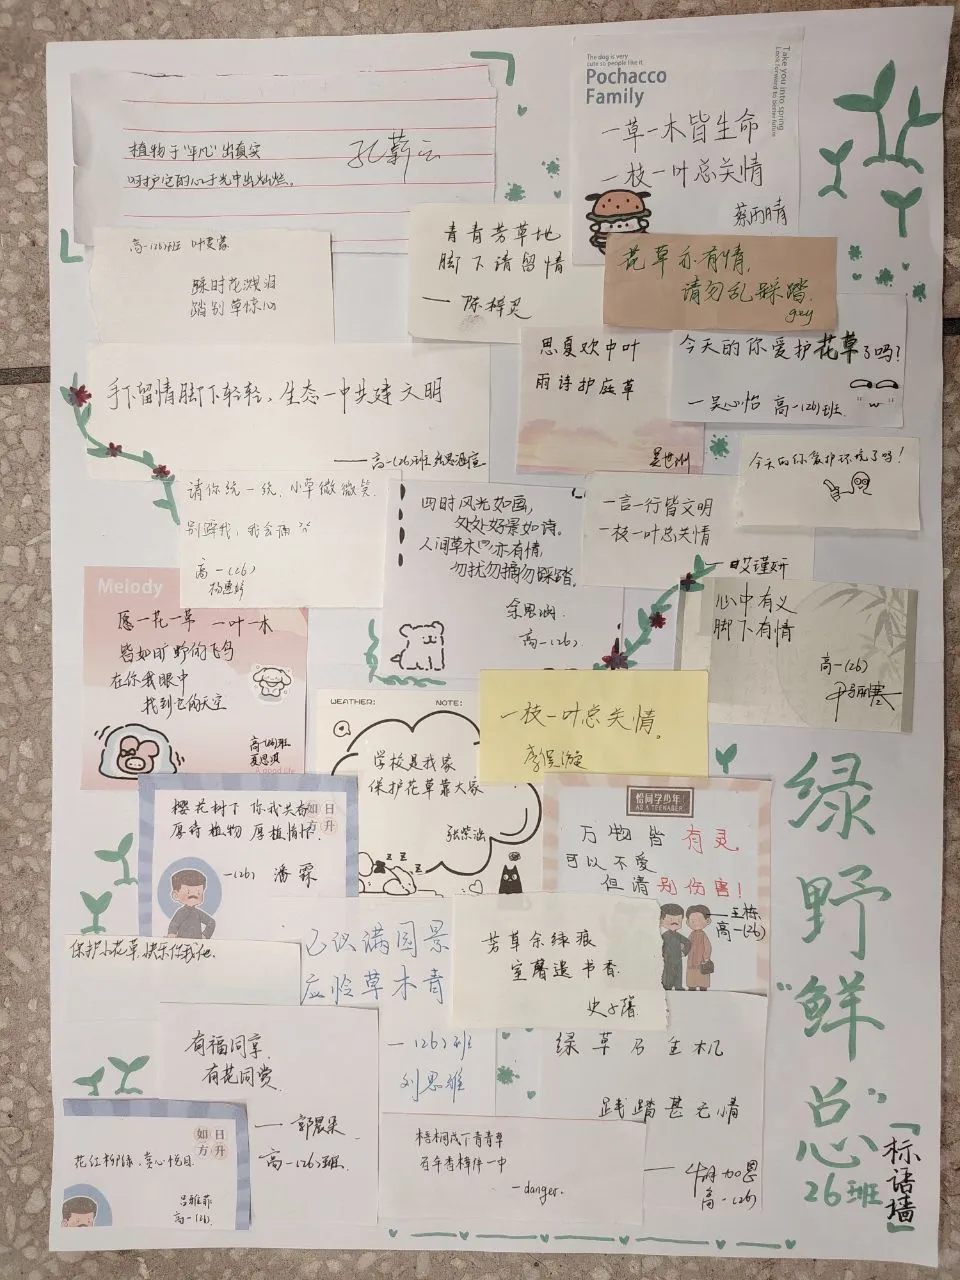 植物于"平凡"出真实
呵护它的心于光中出灿烂。
The dog is very
cute so people like it
Pochacco
Family
Take you into spring
Look forward to better future
一草一木皆生命
一枝一叶总关情
蔡雨晴
高一(26)班
踩时花溅泪
踏别草惊心
青青芳草地
脚下请留情
花草亦有情,
请勿乱踩踏.
gzy
手下留情脚下轻轻、生态一中共建文明
高一(26)班
思夏欢中叶
雨诗护庭草
今天的你爱护花草了吗?
一吴心怡 高一(26)班.
今天的你爱护环境了吗!
请你绕一绕,小草微微笑.
别踩我,我会痛
高一(26)
四时风光如画,
处处好景如诗。
人间草木 亦有情,
勿扰勿摘勿踩踏。
余思涵.
高一(26).
一言一行皆文明
一枝一叶总关情
心中有义
脚下有情
高一(26)
Melody
愿一花一草 一叶一木
皆如旷野的飞鸟
在你我眼中
找到它的天空
高一(26)班
夏思琪
A good life
WEATHER:
NOTE:
学校是我家
保护花草靠大家
一枝一叶总关情。
樱花树下 你我共
厚待植物 厚植情怀.
如日
方升
一(26) 潘霖
恰同学少年!
AS A TEENAGER
万物皆有灵
可以不爱
但请别伤害!
一王栋
高一(26)
保护小花草,快乐你我他.
已似满园景
应怜草木青
一(26)班
刘思雅
芳草余绿痕
室馨遗书香.
有福同享,
有花同赏.
一郭晨朵
高一(26)班.
绿草有生机
践踏甚无情
高一(26)
如日
方升
花红柳绿,赏心悦目.
吕雅菲
高一(26).
梧桐茂下青青草
百年香樟伴一中
一danger.
绿野"鲜"总"
26班
「标语墙」